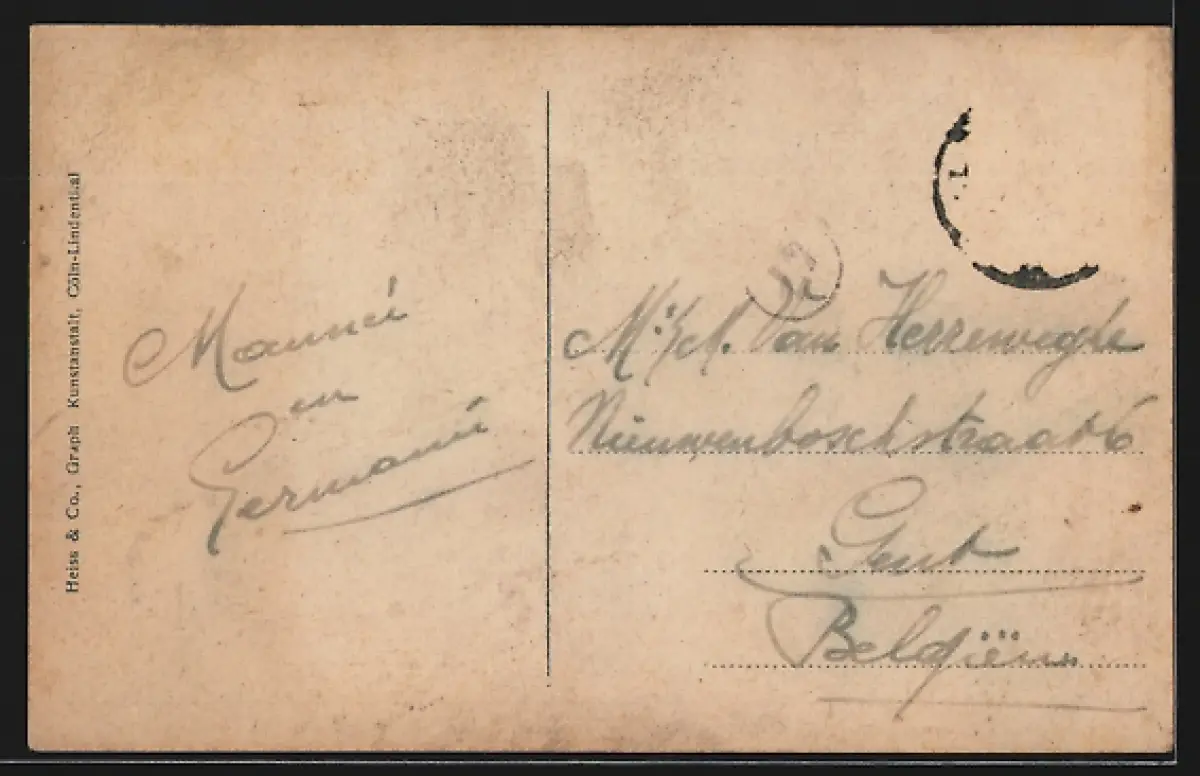 Heiss & Co., Graph Kunstanstalt, Cöln-Lindenthal
en
Germanie
Mr/M. Van Herreweghe
Nieuwenboschstraat 6
Gent
Belgiën